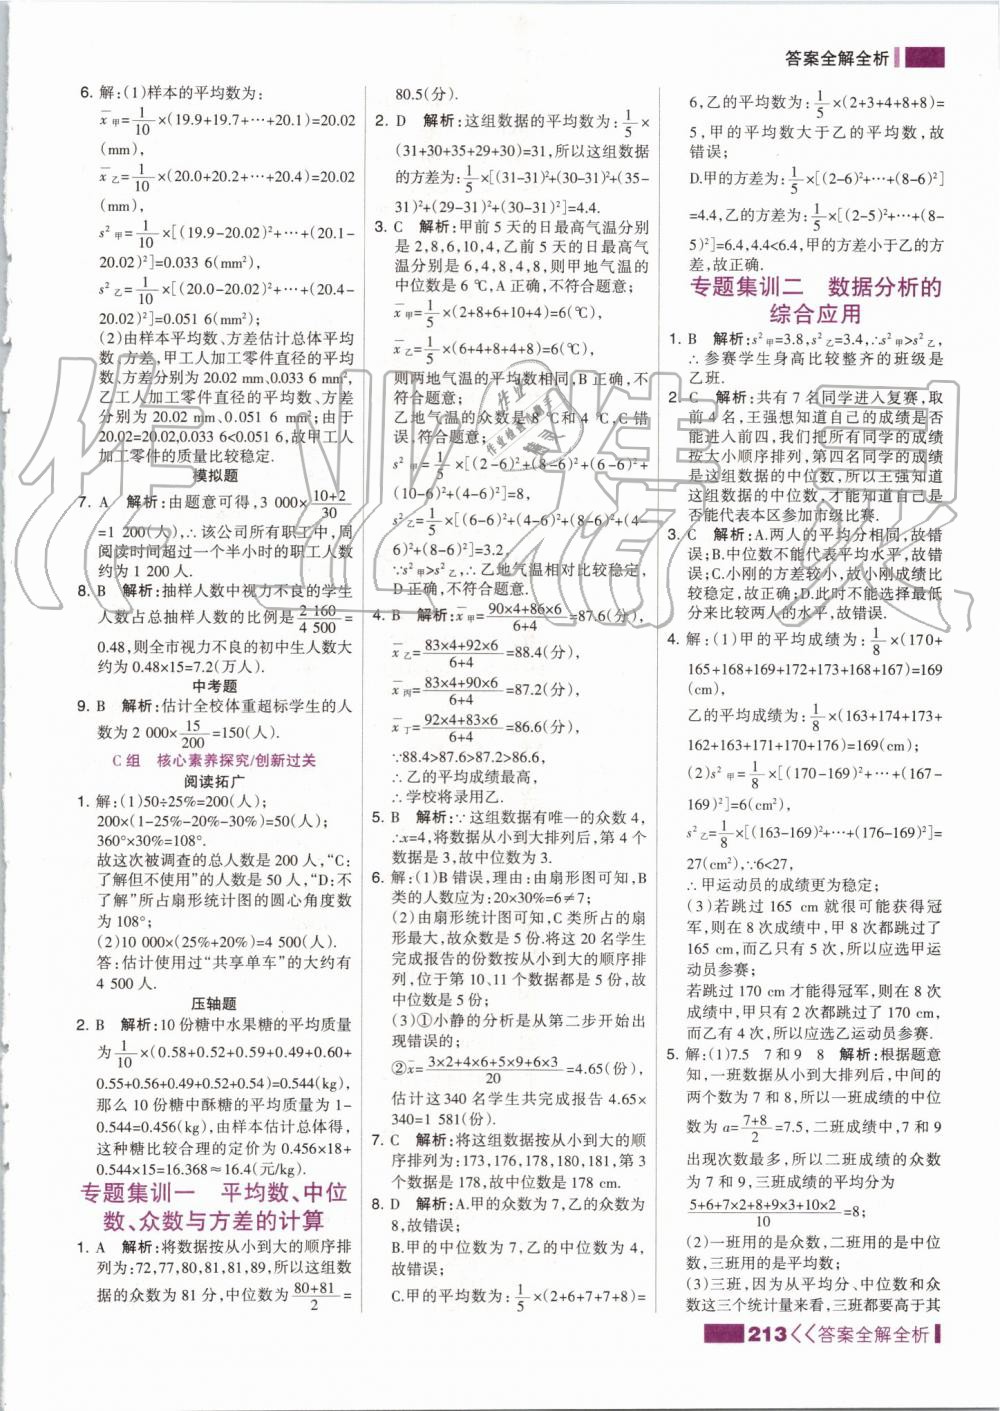 答案全解全析
6. 解:(1)样本的平均数为:
x̄甲=1/10×(19.9+19.7+⋯+20.1)=20.02
(mm),
x̄乙=1/10×(20.0+20.2+⋯+20.4)=20.02
(mm),
s²甲=1/10×[(19.9-20.02)²+⋯+(20.1-
20.02)²]=0.033 6(mm²),
s²乙=1/10×[(20.0-20.02)²+⋯+(20.4-
20.02)²]=0.051 6(mm²);
(2)由样本平均数、方差估计总体平均
数、方差,甲工人加工零件直径的平均
数、方差分别为 20.02 mm、0.033 6 mm²,
乙工人加工零件直径的平均数、方差
分别为 20.02 mm、0.051 6 mm²;由于
20.02=20.02,0.033 6<0.051 6,故甲工人
加工零件的质量比较稳定.
模拟题
7. A 解析:由题意可得,3 000×(10+2)/30
=1 200(人),∴该公司所有职工中,周
阅读时间超过一个半小时的职工人数
约为 1 200 人.
8. B 解析:抽样人数中视力不良的学生
人数占总抽样人数的比例是 2 160/4 500=
0.48,则全市视力不良的初中生人数大
约为 0.48×15=7.2(万人).
中考题
9. B 解析:估计全校体重超标学生的人
数为 2 000×15/200=150(人).
C组 核心素养探究/创新过关
阅读拓广
1. 解:(1)50÷25%=200(人);
200×(1-25%-20%-30%)=50(人);
360°×30%=108°.
故这次被调查的总人数是 200 人,“C:
了解但不使用”的人数是 50 人,“D:不
了解”所占扇形统计图的圆心角度数
为 108°;
(2)10 000×(25%+20%)=4 500(人).
答:估计使用过“共享单车”的大约有
4 500 人.
压轴题
2. B 解析:10 份糖中水果糖的平均质量
为 1/10×(0.58+0.52+0.59+0.49+0.60+
0.55+0.56+0.49+0.52+0.54)=0.544(kg),
那么 10 份糖中酥糖的平均质量为 1-
0.544=0.456(kg),由样本估计总体得,
这种糖比较合理的定价为 0.456×18+
0.544×15=16.368≈16.4(元/kg).
专题集训一 平均数、中位
数、众数与方差的计算
1. A 解析:将数据按从小到大的顺序排
列为:72,77,80,81,81,89,所以这组数
据的众数为 81 分,中位数为 (80+81)/2=
80.5(分).
2. D 解析:这组数据的平均数为:1/5×
(31+30+35+29+30)=31,所以这组数据
的方差为:1/5×[(31-31)²+(30-31)²+(35-
31)²+(29-31)²+(30-31)²]=4.4.
3. C 解析:甲前 5 天的日最高气温分别
是 2,8,6,10,4,乙前 5 天的日最高气
温分别是 6,4,8,4,8,则甲地气温的
中位数是 6 ℃,A 正确,不符合题意;
x̄甲=1/5×(2+8+6+10+4)=6(℃),
x̄乙=1/5×(6+4+8+4+8)=6(℃),
则两地气温的平均数相同,B 正确,不
符合题意;
乙地气温的众数是 8 ℃和 4 ℃,C 错
误,符合题意;
s²甲=1/5×[(2-6)²+(8-6)²+(6-6)²+
(10-6)²+(4-6)²]=8,
s²乙=1/5×[(6-6)²+(4-6)²+(8-6)²+(4-
6)²+(8-6)²]=3.2,
∵s²甲>s²乙,∴乙地气温相对比较稳定,
D 正确,不符合题意.
4. B 解析:x̄甲=(90×4+86×6)/(6+4)=87.6(分),
x̄乙=(83×4+92×6)/(6+4)=88.4(分),
x̄丙=(83×4+90×6)/(6+4)=87.2(分),
x̄丁=(92×4+83×6)/(6+4)=86.6(分),
∵88.4>87.6>87.2>86.6,
∴乙的平均成绩最高,
∴学校将录用乙.
5. B 解析:∵这组数据有唯一的众数 4,
∴x=4,将数据从小到大排列后,第 4 个
数据是 3,故中位数为 3.
6. 解:(1)B 错误,理由:由扇形图可知,B
类的人数应为:20×30%=6≠7;
(2)由扇形统计图可知,C 类所占的扇
形最大,故众数是 5 份.将这 20 名学生
完成报告的份数按从小到大的顺序排
列,位于第 10、11 个数据都是 5 份,故
中位数是 5 份;
(3)①小静的分析是从第二步开始出
现错误的;
②x̄=(3×2+4×6+5×9+6×3)/20=4.65(份),
估计这340 名学生共完成报告 4.65×
340=1 581(份).
7. C 解析:将这组数据按从小到大的顺
序排列为:173,176,178,180,181,第 3
个数据是 178,故中位数是 178 cm.
8. D 解析:A.甲的众数为 7,乙的众数为
8,故错误;
B.甲的中位数为 7,乙的中位数为 4,
故错误;
C.甲的平均数为:1/5×(2+6+7+7+8)=
6,乙的平均数为:1/5×(2+3+4+8+8)=
5,甲的平均数大于乙的平均数,故
错误;
D.甲的方差为:1/5×[(2-6)²+⋯+(8-6)²]
=4.4,乙的方差为:1/5×[(2-5)²+⋯+(8-
5)²]=6.4,4.4<6.4,甲的方差小于乙的方
差,故正确.
专题集训二 数据分析的
综合应用
1. B 解析:s²甲=3.8,s²乙=3.4,∴s²甲>s²乙,
∴参赛学生身高比较整齐的班级是
乙班.
2. C 解析:共有 7 名同学进入复赛,取
前 4 名,王强想知道自己的成绩是否
能进入前四,我们把所有同学的成绩
按大小顺序排列,第四名同学的成绩
是这组数据的中位数,所以王强知道
这组数据的中位数,才能知道自己是
否能代表本区参加市级比赛.
3. C 解析:A.两人的平均分相同,故错
误;B.中位数不能代表平均水平,故错
误;C.小刚的方差较小,故小刚成绩比
较稳定,故正确;D.此时不能选择最低
分来比较两人的水平,故错误.
4. 解:(1)甲的平均成绩为:1/8×(170+
165+168+169+172+173+168+167)=169
(cm),
乙的平均成绩为:1/8×(163+174+173+
162+163+171+170+176)=169(cm);
(2)s²甲=1/8×[(170-169)²+⋯+(167-
169)²]=6(cm²),
s²乙=1/8×[(163-169)²+⋯+(176-169)²]=
27(cm²),∵6<27,
∴甲运动员的成绩更为稳定;
(3)若跳过 165 cm 就很可能获得冠
军,则在 8 次成绩中,甲 8 次都跳过了
165 cm,而乙只有 5 次,所以应选甲运
动员参赛;
若跳过 170 cm 才能得冠军,则在 8 次
成绩中,甲只有 2 次都跳过了 170 cm,
而乙有 4 次,所以应选乙运动员参赛.
5. 解:(1)7.5 7和9 8 解析:根据题意
知,一班数据从小到大排列后,中间的
两个数为 7 和 8,所以一班成绩的中位
数为 a=(7+8)/2=7.5,二班成绩中,7 和 9
出现次数最多,所以二班成绩的众数
为 7 和 9,三班成绩的平均分为
(5+6+7×2+8×3+9×3+10×2)/10=8;
(2)一班用的是众数,二班用的是中位
数,三班用的是平均数;
(3)三班,因为从平均分、中位数和众
数这三个统计量来看,三班都要高于其
213<<答案全解全析